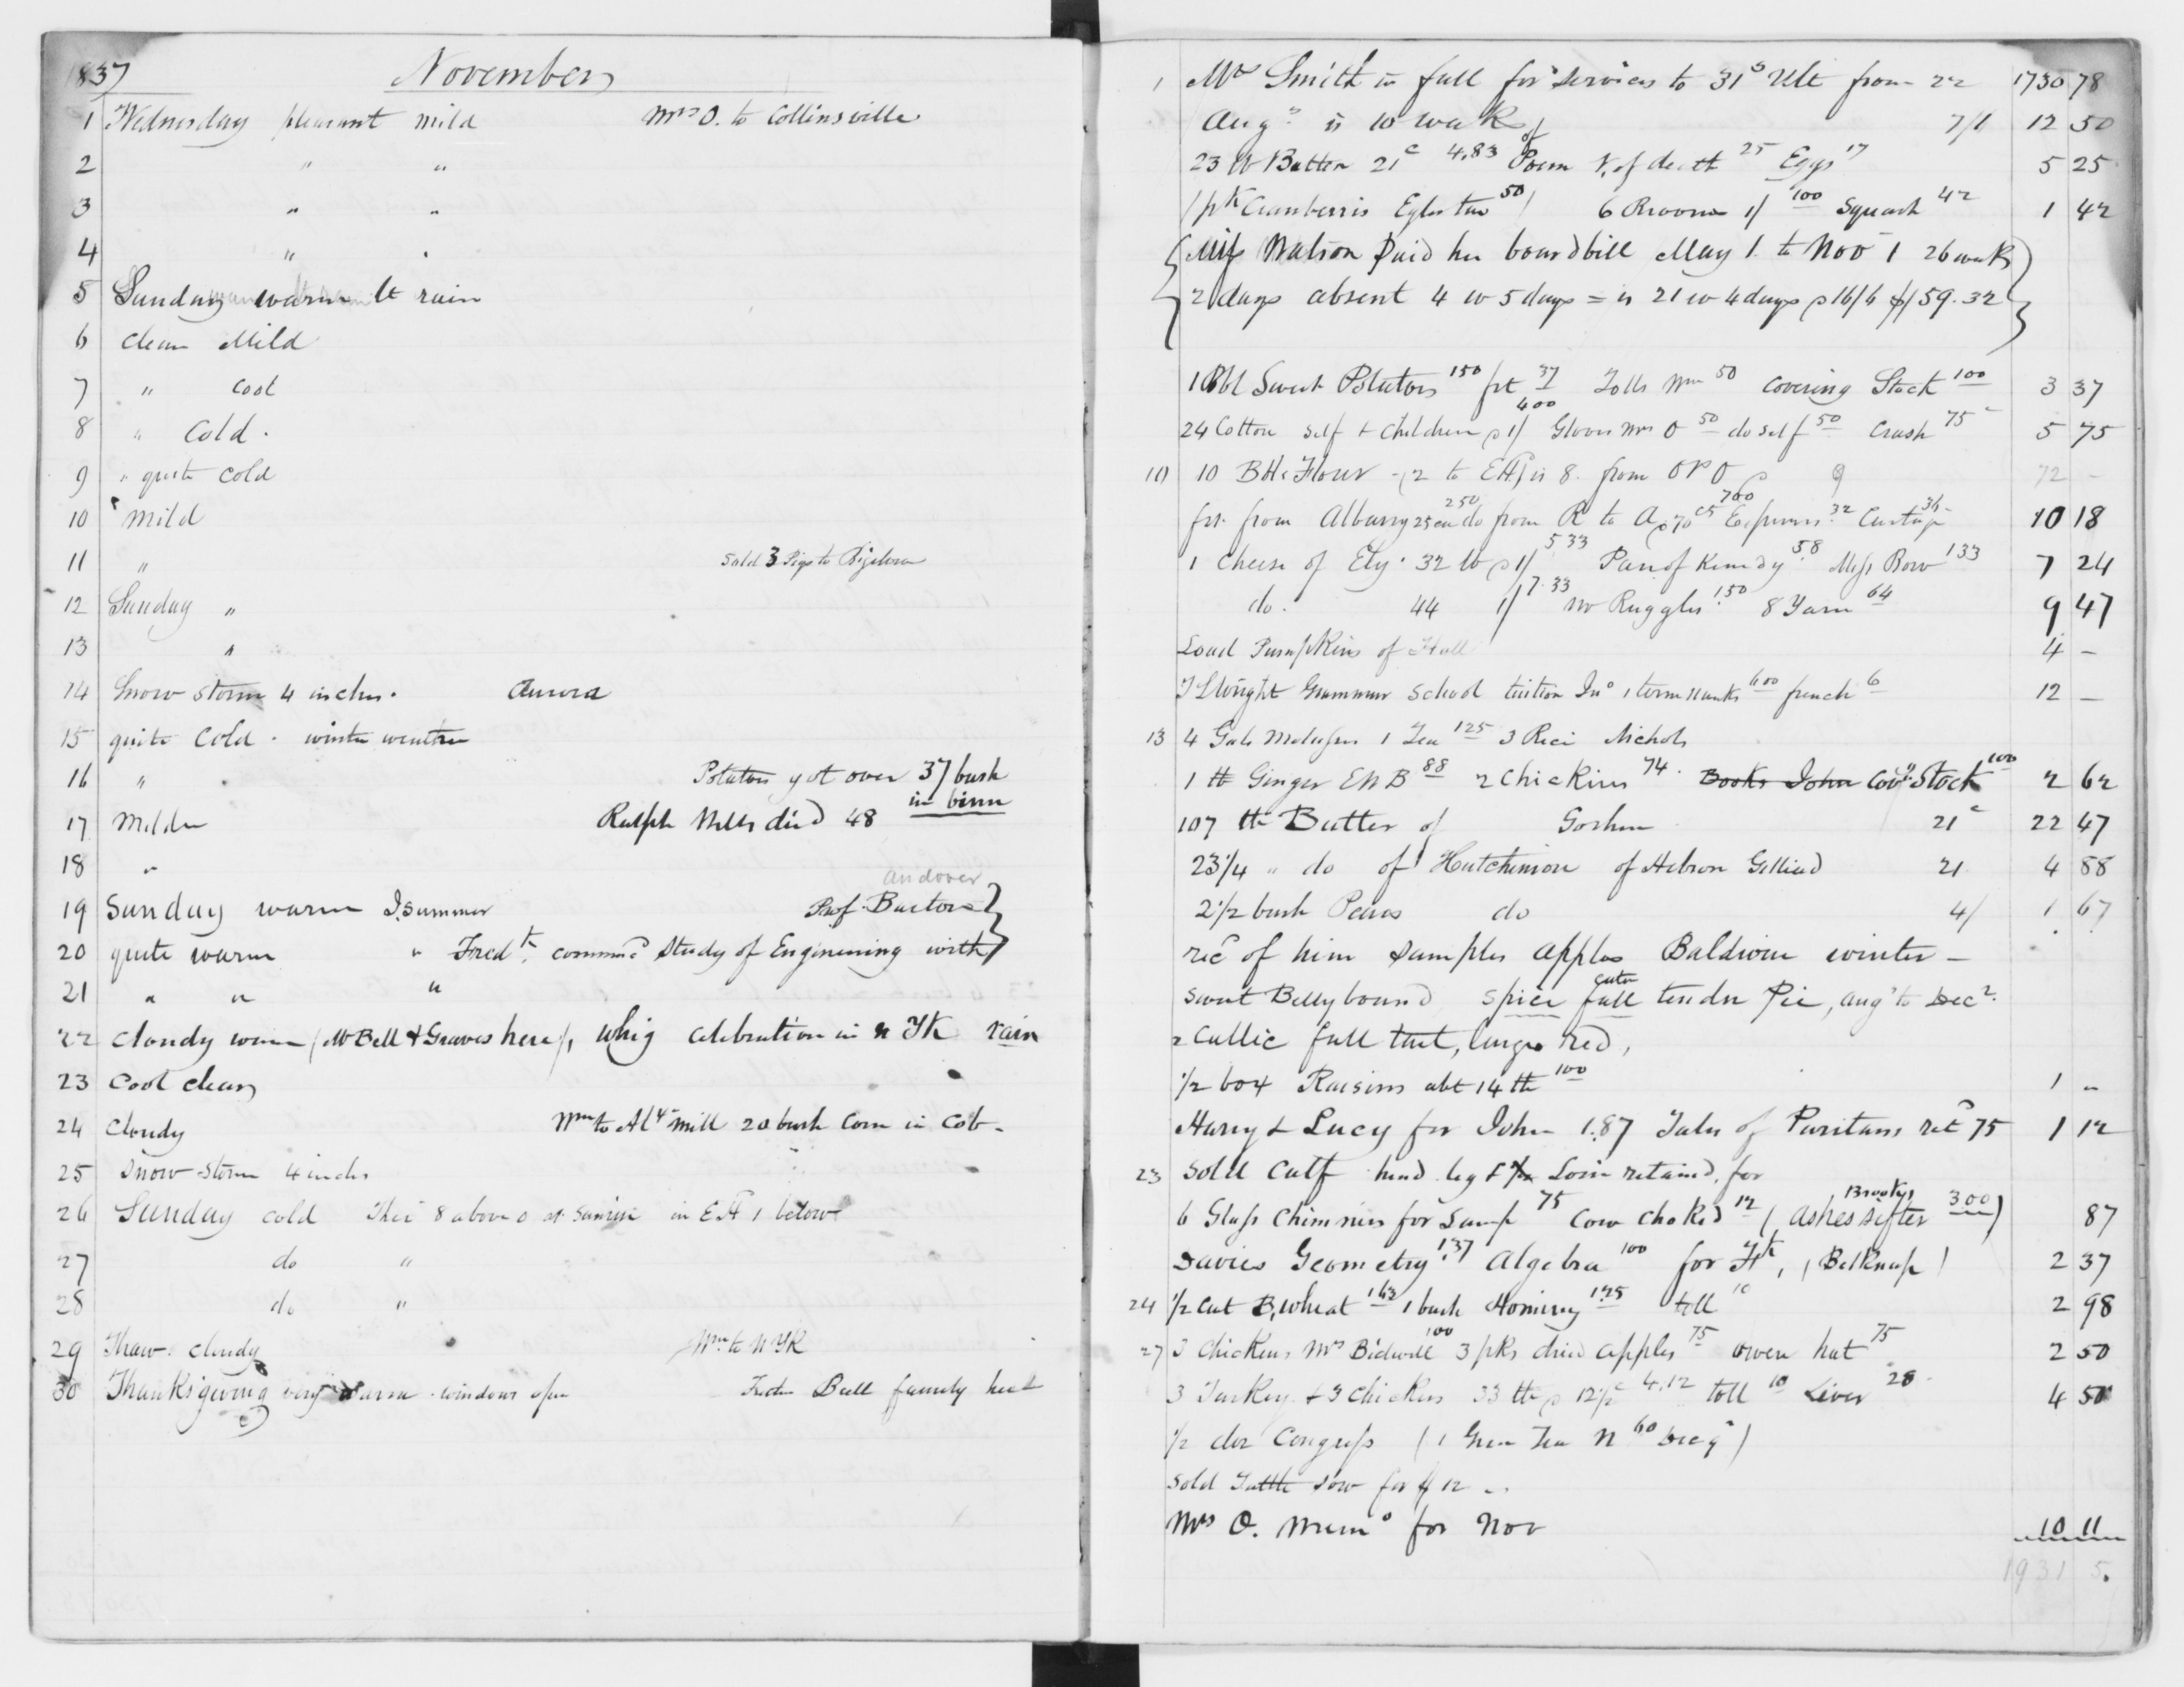 1837 November
1 Wednesday pleasant mild Mrs O. to Collinsville
2 " "
3 " "
4 " "
5 Sunday warm lt rain
6 clear Mild
7 " Cool
8 " Cold.
9 " quite cold
10 mild
11 " Sold 3 Pigs to Bigelow
12 Sunday "
13 "
14 Snow storm 4 inches. Aurora
15 quite Cold. winter weather
16 " Potatoes got over 37 bush in binn
17 Milder Ralph Wells died 48
18 "
andover
19 Sunday warm I. Summer Prof. Burton
20 quite warm " Fredk. commencd Study of Enginering with
21 " " "
22 cloudy warm (Mr Bell & Graves here), Whig celebration in N Yk rain
23 Cool clear
24 Cloudy Wm to Aly. Mill 20 bush Corn in Cob -
25 Snow-storm 4 inches
26 Sunday cold Ther 8 above 0 at Sunrise in E H 1 below
27 do "
28 do "
29 Thaw. cloudy Wm to N Yk
30 Thanksgiving very warm - windows open Bull family here
1 Mrs Smith in full for services to 31s Ult from 22 1730 78
Aug is 10 weeks 7/6 12 50
23 lb Butter 21c 4.83 Poem of death 25 Eggs 17 5 25
1 pk Cranberries 50 6 Brooms 1/ 100 Squash 42 1 42
Miss Watson paid her board bill May 1. to Nov 1 26 weeks
2 days absent 4 w 5 days = is 21 w 4 days @ 16/6 $59.32
1 Bbl Sweet Potatoes 150 frt 37 Tolls Wm 50 covering Stock 100 3 37
24 Cotton self & Children @ 1/ 400 Gloves Mrs O 50 do self 50 Crash 75c 5 75
10 10 Bbls Flour - (2 to EH) is 8 from O P O @ 9 72 -
frt. from Albany 25 ea 250 do from R to A @ 70cs 700 Expenses 32 Cartage 36 10 18
1 Cheese of Ely. 32 lb @ 1/ 5 33 Pan of Kennedy 58 Miss Row 133 7 24
do. 44 1/ 7.33 Ruggles 1.50 8 Yarn 64 9 47
Load Pumpkins of Hall 4 -
T L Wright Grammer School tuition Jno 1 term 600 french 6 12 -
13 4 Gals Molasses 1 Tea 125 3 Rice Nichols
1 lb Ginger E W B 88 2 Chickins 74. Books John Covg Stock 100 2 62
107 lb Butter of Goshen 21c 22 47
23 1/4 " do of Hutchinson of Hebron Gilliad 21 4 88
2 1/2 bush Pears do 4/ 1.67
recd of him samples apples Baldwin winter -
Sweet Bellybound spice fall tender Pie, augt to Dec
2 Cullic fall tart, large red,
1/2 box Raisins abt 14 lb 100 1 -
Harry & Lucy for John 1.87 Tales of Puritans retd 75 1 12
23 Sold Calf hind leg & Loin retained, for
6 Glass Chimnies for Lamp 75 Cow choked 12 (Ashes sifter Brooks 3.00) 87
Davies Geometry 1.37 Algebra 100 for Fk, (Belknap) 2 37
24 1/2 Cwt B. Wheat 163 1 bush Hominy 1.25 toll 10 2 98
27 3 Chickens Mrs Bidwell 100 3 pks dried apples 75 Owen hat 75 2 50
3 Turkey & 3 Chickens 33 lb @ 12 1/2c 4.12 toll 10 Liver 28 4 50
1/2 doz Congress (1 Green Tea N 60 Decr)
Sold Tuttle sow for $12 -
Mrs O. Memo for Nov 10 11
1931 5.